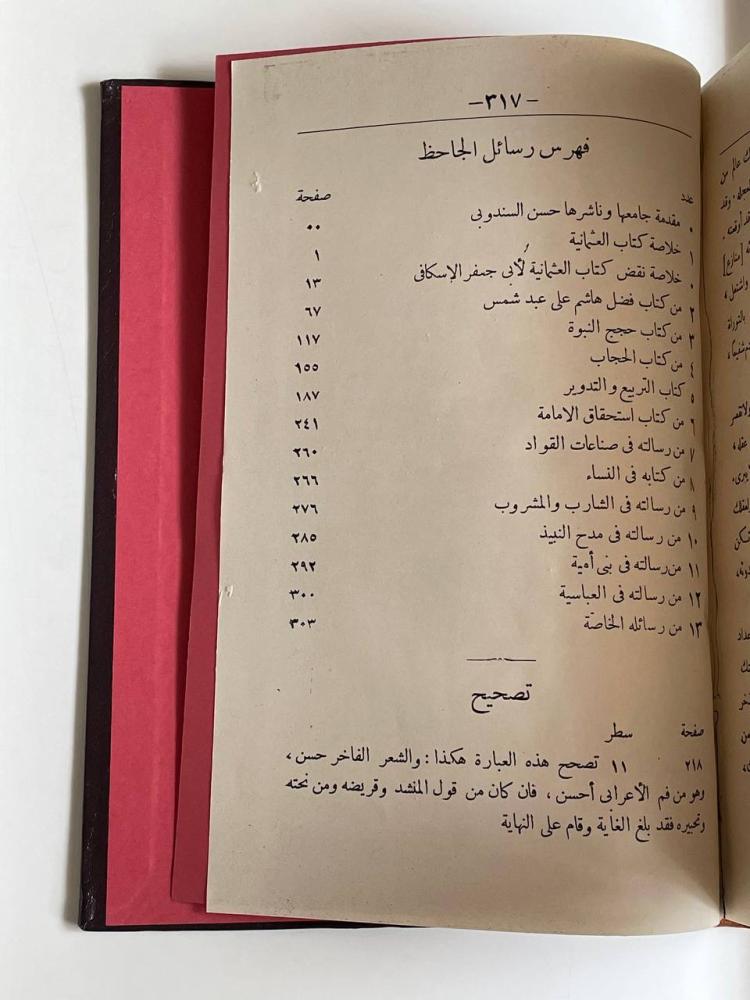 -٣١٧-
فهرس رسائل الجاحظ
عدد صفحة
٠ مقدمة جامعها وناشرها حسن السندوبى ٠٠
١ خلاصة كتاب العثمانية ١
٠ خلاصة نقض كتاب العثمانية لأبى جعفر الإسكافى ١٣
٢ من كتاب فضل هاشم على عبد شمس ٦٧
٣ من كتاب حجج النبوة ١١٧
٤ من كتاب الحجاب ١٥٥
٥ كتاب التربيع والتدوير ١٨٧
٦ من كتاب استحقاق الامامة ٢٤١
٧ من رسالته فى صناعات القواد ٢٦٠
٨ من كتابه فى النساء ٢٦٦
٩ من رسالته فى الشارب والمشروب ٢٧٦
١٠ من رسالته فى مدح النبيذ ٢٨٥
١١ من رسالته فى بنى أمية ٢٩٢
١٢ من رسالته فى العباسية ٣٠٠
١٣ من رسائله الخاصة ٣٠٣
تصحيح
صفحة سطر
٢١٨ ١١ تصحح هذه العبارة هكذا: والشعر الفاخر حسن،
وهو من فم الأعرابى أحسن، فان كان من قول المنشد وقريضه ومن نحته
وتحبيره فقد بلغ الغاية وقام على النهاية